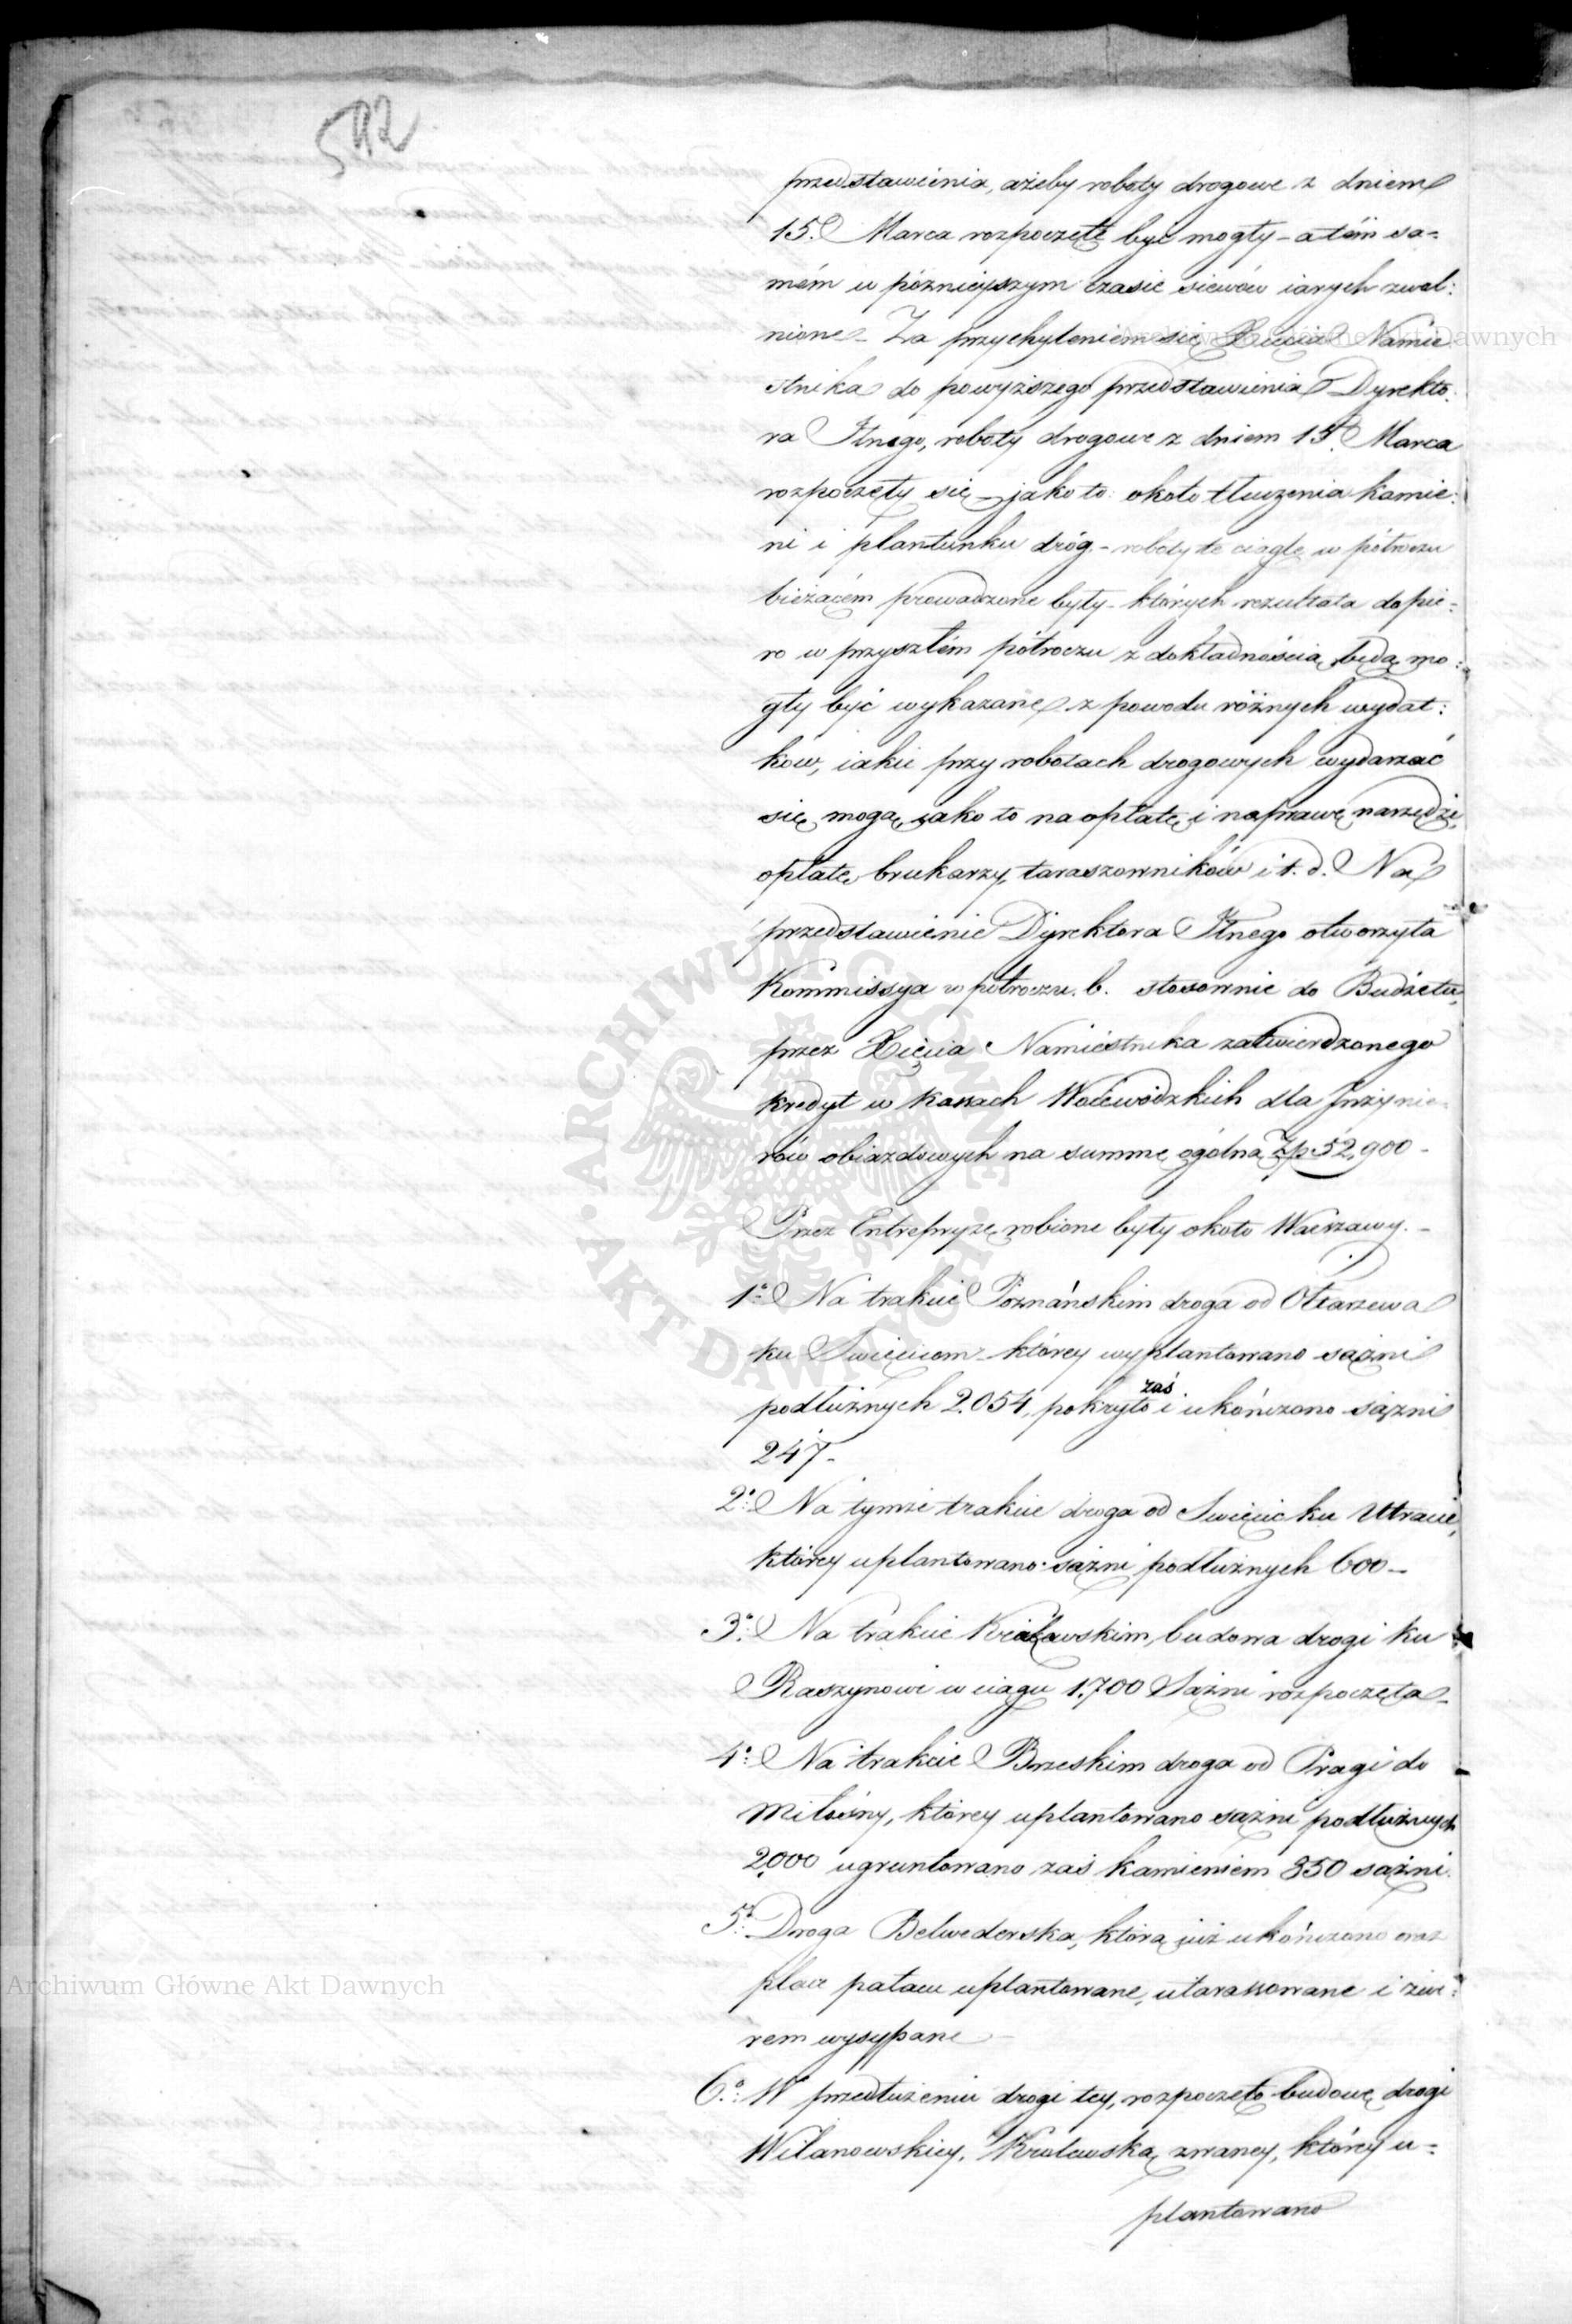 592
przedstawienia, ażeby roboty drogowe z dniem
15. Marca rozpoczęte być mogły – a tém sa=
mém w pózniejszym czasie siewów iarych zwol:
nione – Za przychyleniem się Xięcia Namie
stnika do powyższego przedstawienia Dyrekto:
ra Jlnego, roboty drogowe z dniem 15. Marca
rozpoczęły się – jako to: około tłuczenia kamie:
ni i plantunku dróg – roboty te ciągle w półroczu
bieżącém prowadzone były – których rezultata dopie=
ro w przyszłém półroczu z dokładnością będą mo:
gły być wykazane z powodu różnych wydat:
ków, iakie przy robotach drogowych wydarzać
się mogą, jako to na opłatę i naprawę narzędzi,
opłatę brukarzy, taraszowników i t. d. Na
przedstawienie Dyrektora Jlnego otworzyła
Kommissya w półroczu b. stosownie do Budżetu,
przez Xięcia Namiestnika zatwierdzonego
kredyt w kassach Woiewódzkich dla Jnżynie=
rów obiazdowych na summę ogólną Zp. 52,900 –
Przez Entrepryzę robione były około Warszawy. –
1º Na trakcie Poznańskim droga od Ołtarzewa
ku Swięcicom – którey wyplantowano sążni
podłużnych 2.054, pokryto zaś i ukończono sążni
247 –
2º Na tymże trakcie droga od Swięcic ku Utracie,
którey uplantowano sążni podłużnych 600 –
3º Na trakcie Krakowskim, budowa drogi ku
Raszynowi w ciągu 1,700 Sążni rozpoczęta –
4º Na trakcie Brzeskim droga od Pragi do
Miłosny, którey uplantowano sążni podłużnych
2000 ugruntowano zaś kamieniem 350 sążni.
5º Droga Belwederska, którą już ukończono oraz
place pałacu uplantowane, utarassowane i żwi:
rem wysypane –
6º W przedłużeniu drogi tey, rozpoczęto budowę drogi
Wilanowskiey, Królewską zwaney, którey u=
plantowano
Archiwum Główne Akt Dawnych
Archiwum Główne Akt Dawnych
ARCHIWUM GŁÓWNE · AKT DAWNYCH ·